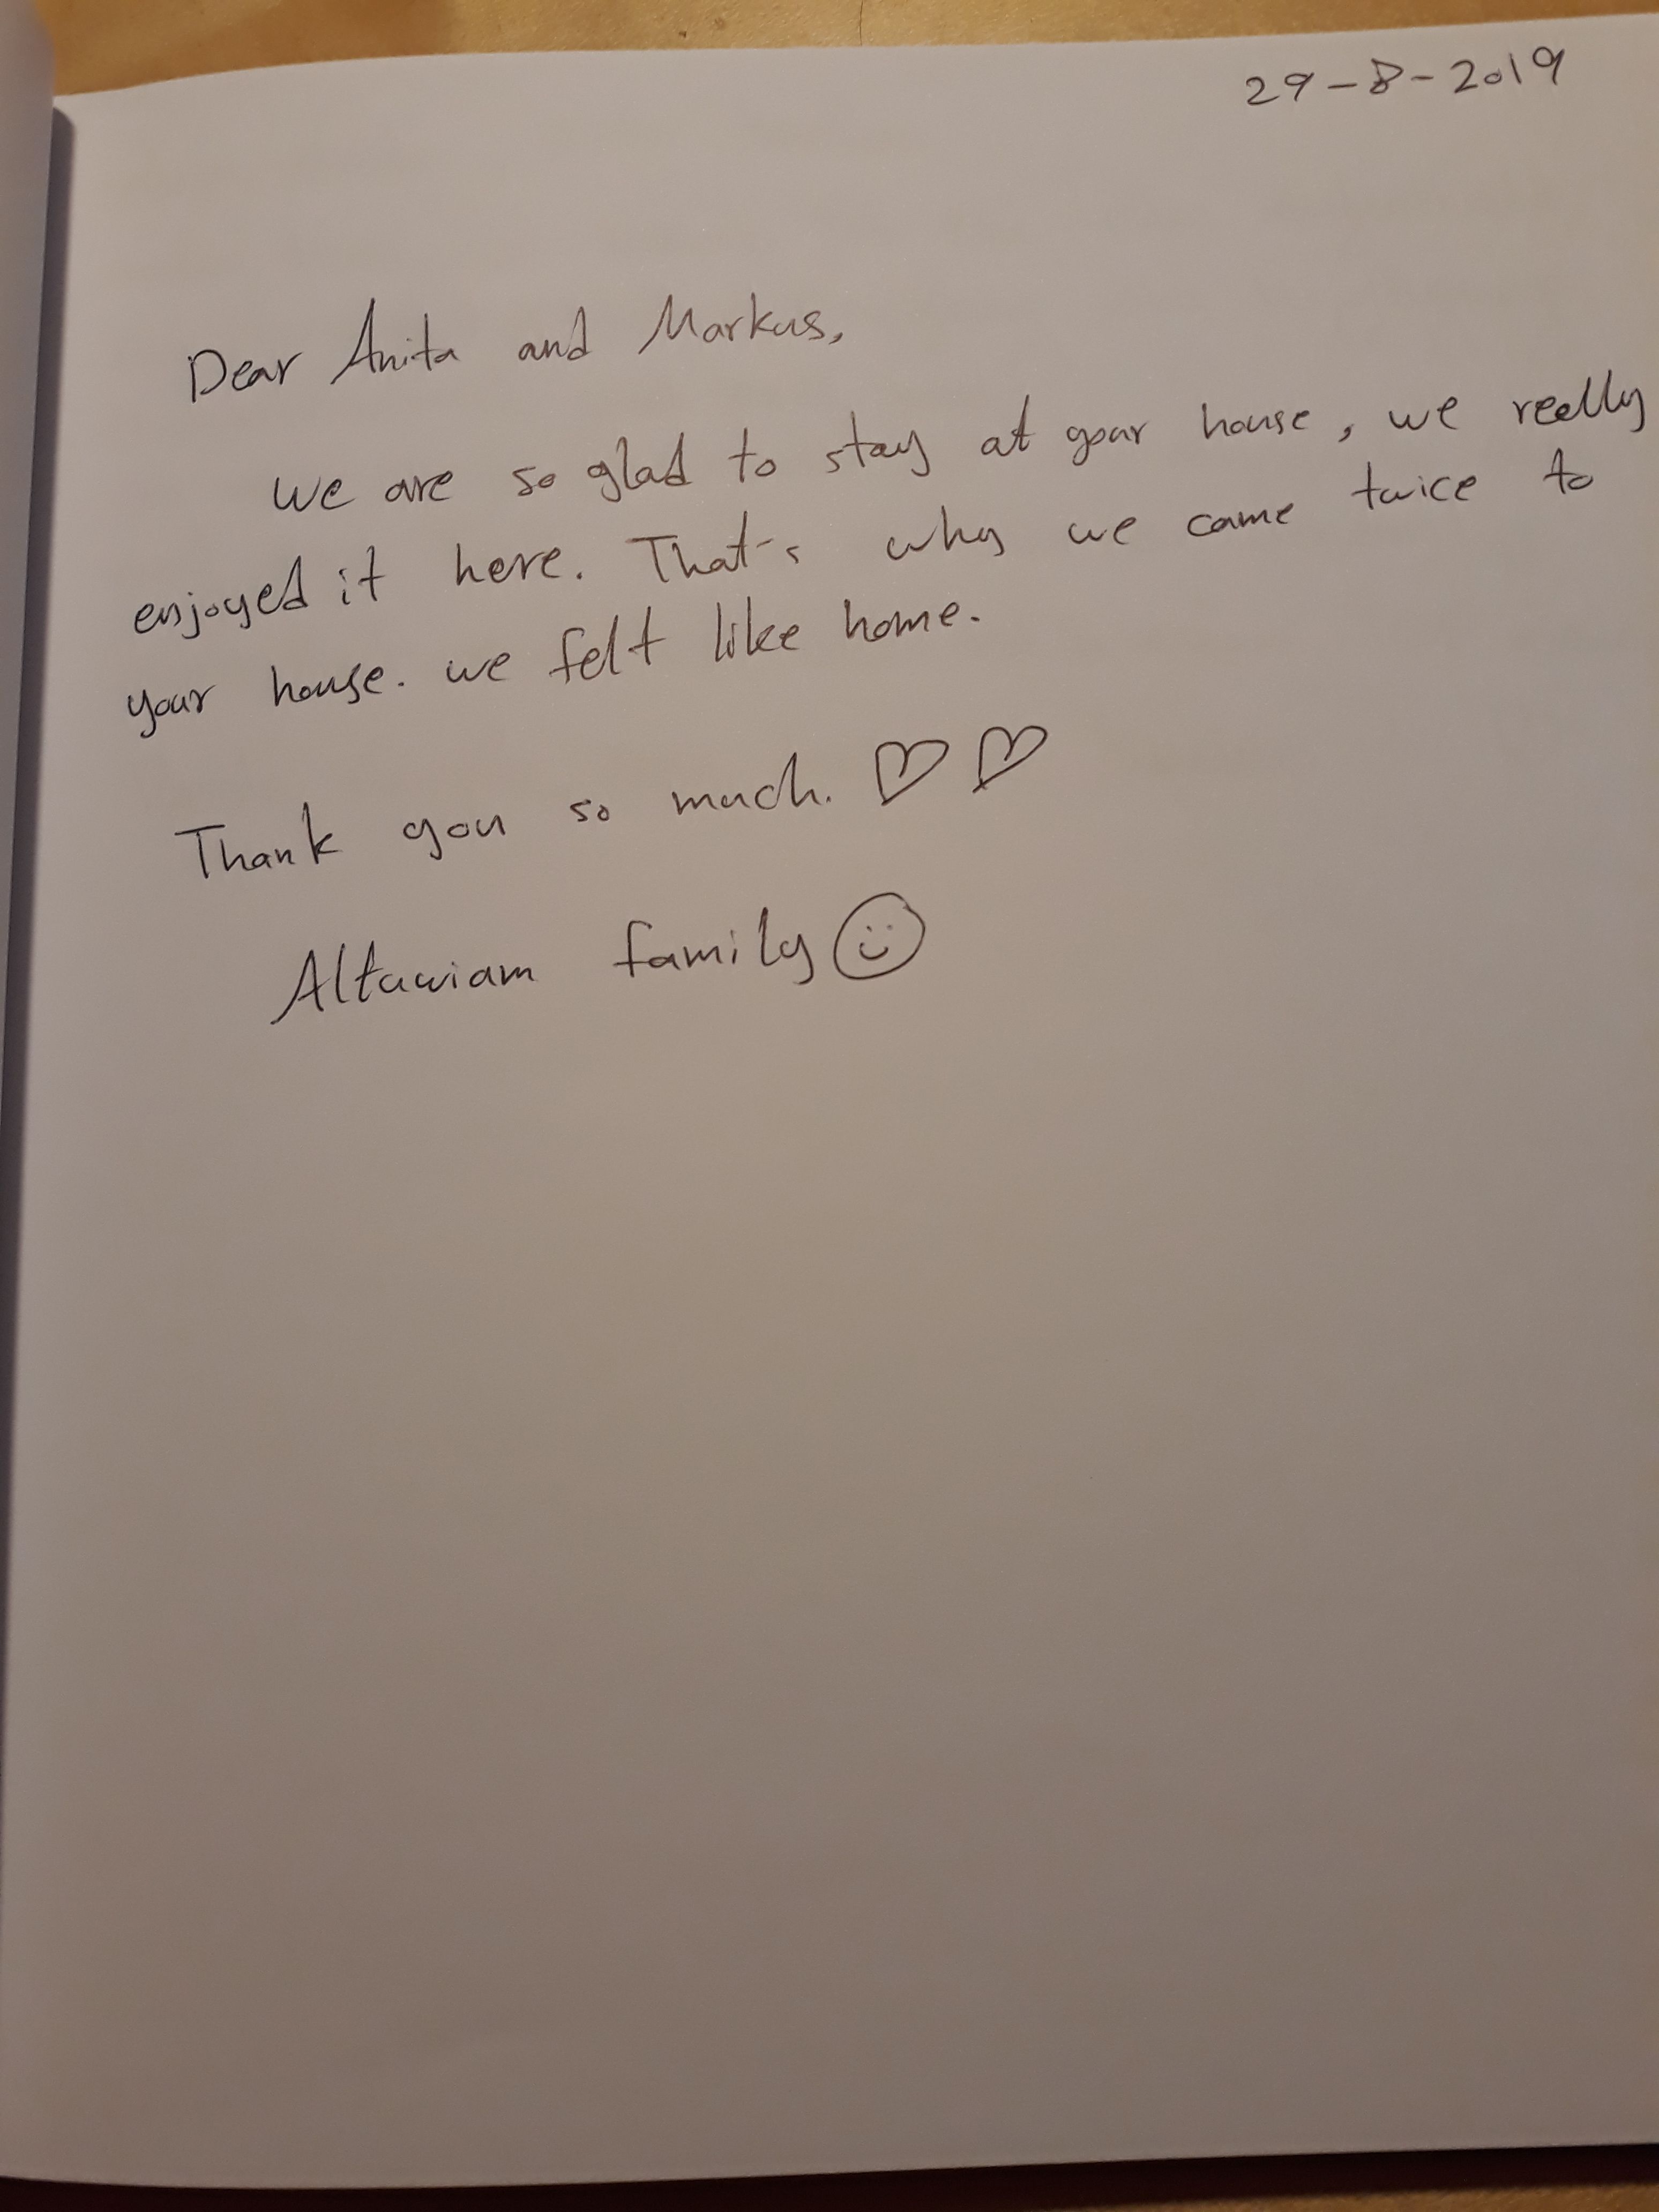 29-8-2019
Dear Anita and Markus,
We are so glad to stay at your house, we really
enjoyed it here. That's why we came twice to
your house. we felt like home.
Thank you so much. ♡ ♡
Altawiam family ☺